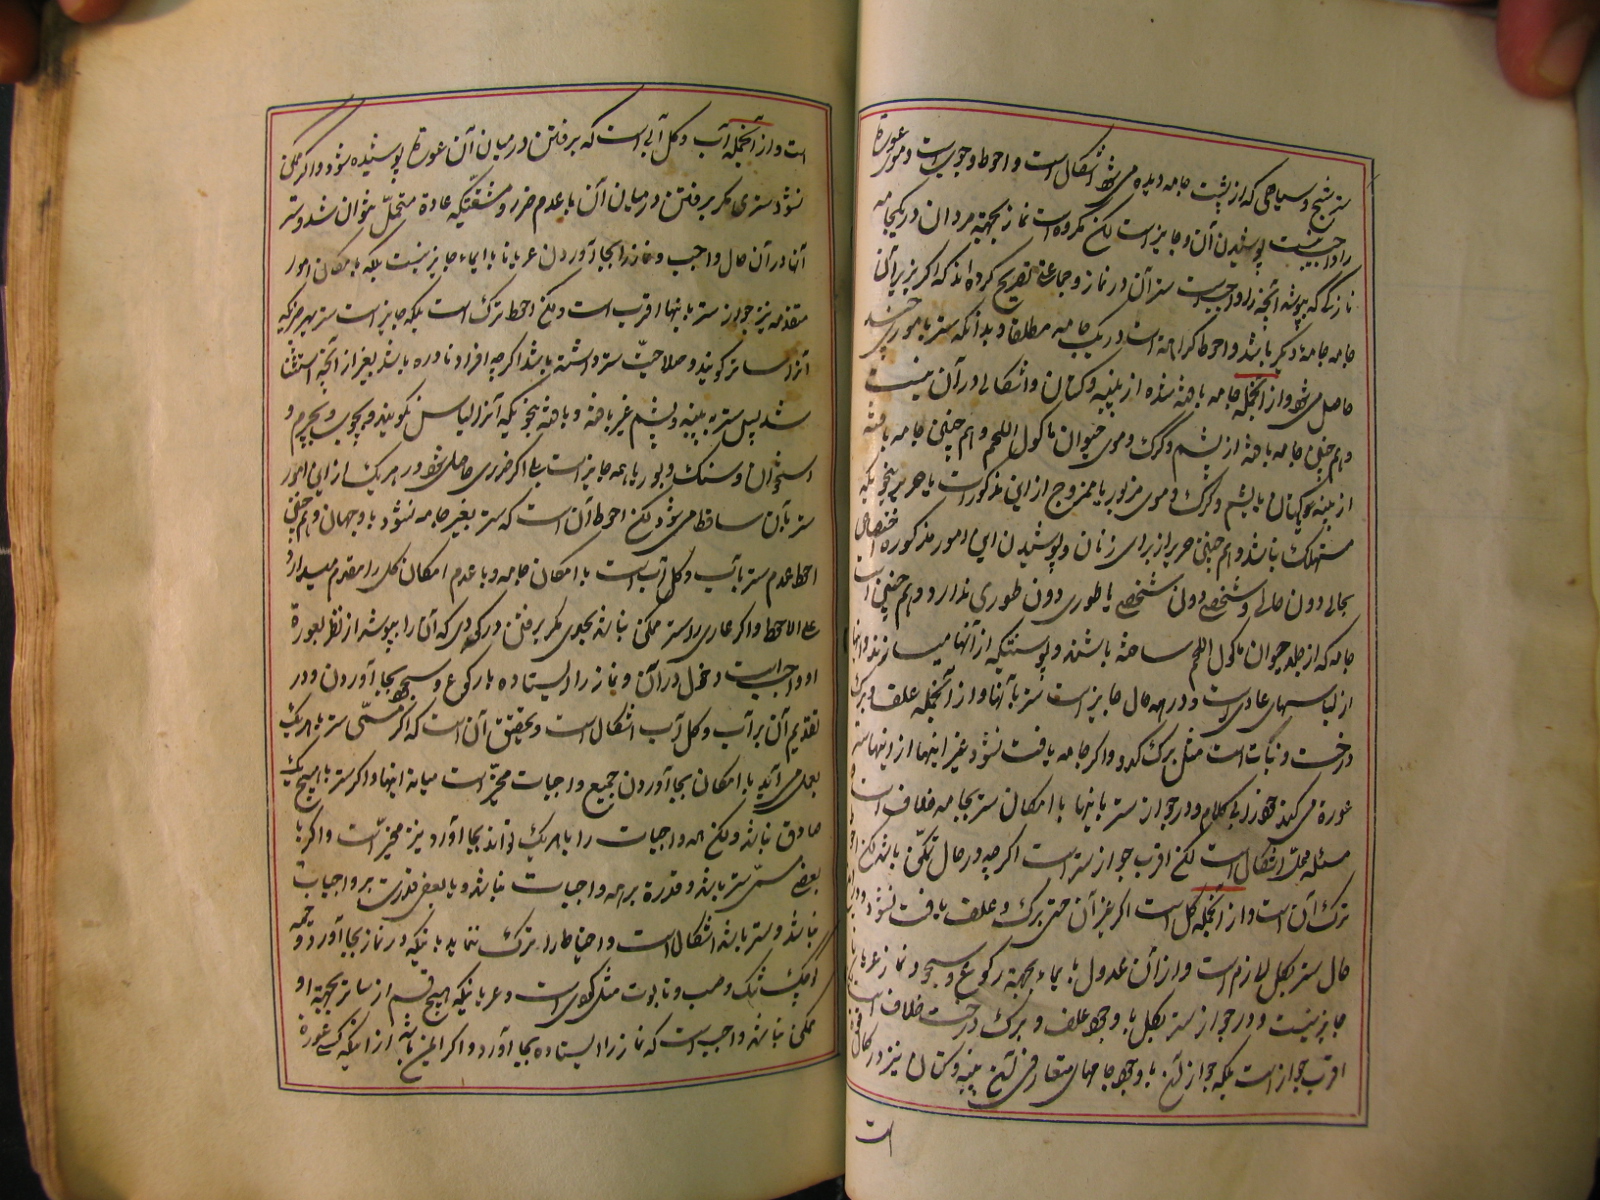 ستر شبح و سیاهی که از پشت جامه دیده می‌شود اشکال است و احوط وجوب است و موی عورة
را واجب نیست پوشیدن آن و جایز است لکن مکروه است نماز بجهة مردان در یکجامه
نازکی که بپوشد آنچه را واجب است ستر آن در نماز و جماعتی تصریح کرده‌اند که اگر بزیر آن
جامه جامهٔ دیگر باشد و احوط کراهة است در یک جامه مطلقا و بدانکه ستر بامور چند
حاصل می‌شود و از آنجمله جامه بافته شده از پنبه و کتان و اشکالی در آن نیست
و هم چنین جامه بافته از پشم و کرک و موی حیوان ماکول اللحم و هم چنین جامه بافته
از پنبه و کتان یا پشم و کرک و موی مزبور یا ممزوج از این مذکورات با حریر بنحویکه
مستهلک نباشد و هم چنین حریر از برای زنان و پوشیدن این امور مذکوره اختصاص
بحالی دون حالی و شخصی دون شخصی یا طوری دون طوری ندارد و هم چنین است
جامه که از جلد حیوان ماکول اللحم ساخته باشند و پوستینکه از آنها میسازند و اینها
از لباسهای عادی است و در همه حال جایز است ستر بآنها و از آنجمله علف و برک
درخت و نبات است مثل برک کدو و اگر جامه یافت نشود غیر اینها از اینها ستر
عورة می‌کند بلا کلام و در جواز ستر باینها با امکان ستر بجامه خلاف است
مسئله محل اشکال است لکن اقرب جواز ستر است اگرچه در حال تمکن باشد لکن احوط
ترک آن است و از آنجمله گل است اگر غیر آن حتی برک و علف یافت نشود و در این
حال ستر بگل لازم است و از آن عدول بایماء بجهة رکوع و سجود و نماز عریانا
جایز نیست و در جواز ستر بگل با وجود علف و برک درخت خلاف است
اقرب جواز است بلکه جواز آن با وجود جامهای متعارفی از پنبه و کتان نیز در کمال قوة
است
است و از آنجمله آب و گل آبی است که برفتن در میان آن عورة پوشیده شود و اگر ممکن
نشود ستری مگر برفتن در میان آن با عدم ضرر و مشقتیکه عادة متحمل نتوان شد و ستر
آنها در آن حال واجب و نماز را بجا آوردن عریانا با ایماء جایز نیست بلکه با امکان امور
متقدمه نیز جواز ستر باینها اقرب است ولکن احوط ترک است بلکه جایز است ستر بهر چیزیکه
آنرا ساتر گویند و صلاحیت ستر داشته باشد اگرچه افراد نادره باشد بغیر از آنچه استثنا
شد پس ستر به پنبه و پشم غیر بافته و بافته بنحویکه آنرا لباس نگویند و بچوب و بچرم و
استخوان و سنگ و بوریا همه جایز است بلی اگر ضرری حاصل شود در هر یک از این امور
ستر بآن ساقط می‌شود لکن احوط آن است که ستر بغیر جامه نشود با وجود آن و هم چنین
احوط عدم ستر بآب و گل آب است با امکان جامه و با عدم امکان گل را مقدم میدارد
علی الاحوط و اگر عاری را ستر ممکن نباشد بچیزی مگر برفتن در گودی که آن را بپوشد از نظر بعورة
او واجب است دخول در آن و نماز را ایستاده با رکوع و سجود بجا آوردن و در
تقدیم آن بر آب و گل آب اشکال است و تحقیق آن است که اگر مسمی ستر بهر یک
بعمل می‌آید با امکان بجا آوردن جمیع واجبات مخیر است میانه اینها و اگر ستر بهیچیک
صادق نباشد ولکن همه واجبات را با هر یک تواند بجا آورد نیز مخیر است و اگر با
بعضی مسمی ستر باشد و قدرة بر همه واجبات نباشد و با بعضی قدرت بر واجبات
نباشد و ستر باشد اشکال است و احتیاط را ترک ننماید باینکه دو نماز بجا آورد و
تنک و صب و تابوت مثل گودی است و عریانیکه هیچ قسم از ساتر بجهة او
ممکن نباشد واجب است که نماز را ایستاده بجا آورد و اگر ایمن باشد از اینکه کسی عورة